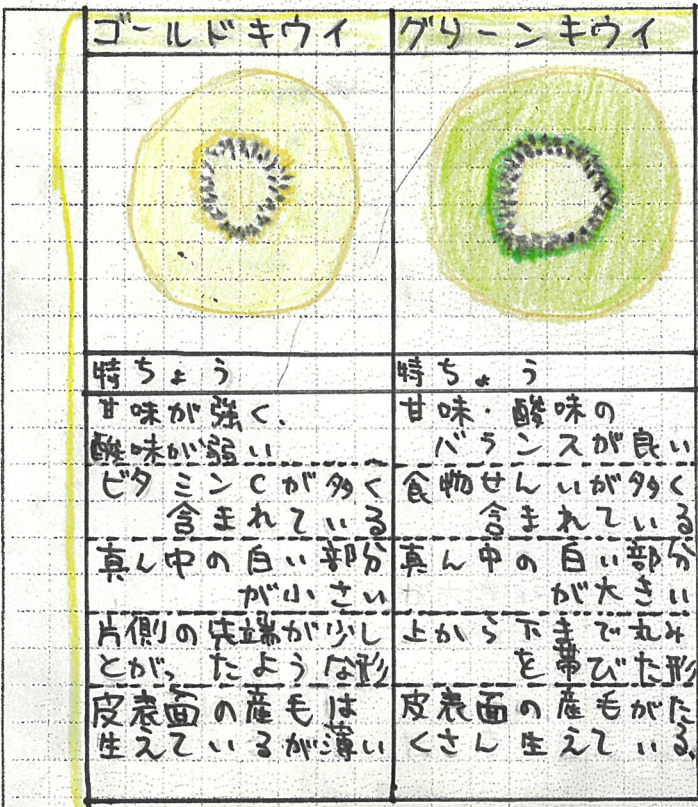 ゴールドキウイ
グリーンキウイ
特ちょう
特ちょう
甘味が強く、
酸味が弱い
甘味・酸味の
バランスが良い
ビタミンCが多く
含まれている
食物せんいが多く
含まれている
真ん中の白い部分
が小さい
真ん中の白い部分
が大きい
片側の先端が少し
とがったような形
上から下まで丸み
を帯びた形
皮表面の産毛は
生えているが薄い
皮表面の産毛がた
くさん生えている。